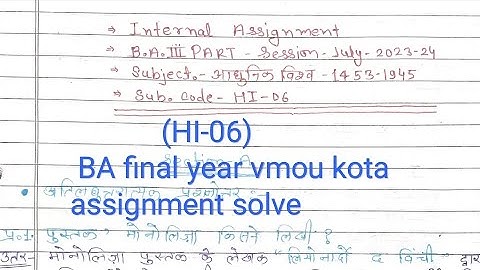 → Internal Assignment
→ B.A. III PART - Session - July - 2023-24
→ Subject. - आधुनिक विश्व - 1453-1945
→ Sub. Code - HI-06
(HI-06)
BA final year vmou kota
assignment solve
प्र०1. पुस्तक मोनोलिज़ा किसने लिखी ?
उत्तर- मोनोलिज़ा पुस्तक के लेखक "लियोनार्दो द विंची"